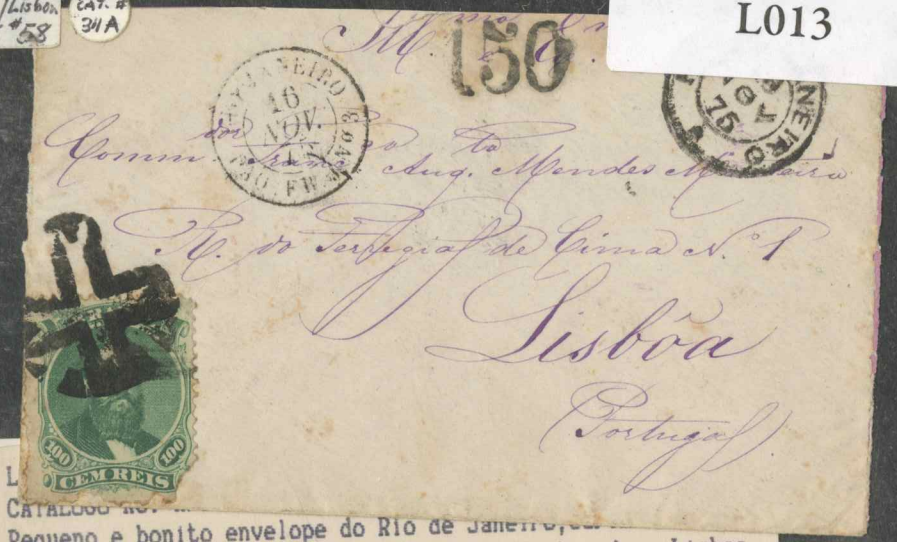 /Lisbon
#58
CAT. #
31A
L013
150
RIO JANEIRO
16
NOV.
75
NEIRO
75
Comm.
Aug.to Mendes Monteiro
R. do Ferregial de Cima N.º 1
Lisbôa
Portugal
100 100
CEM REIS
L
CATALOGO NO.
Pequeno e bonito envelope do Rio de Janeiro,
Lisboa